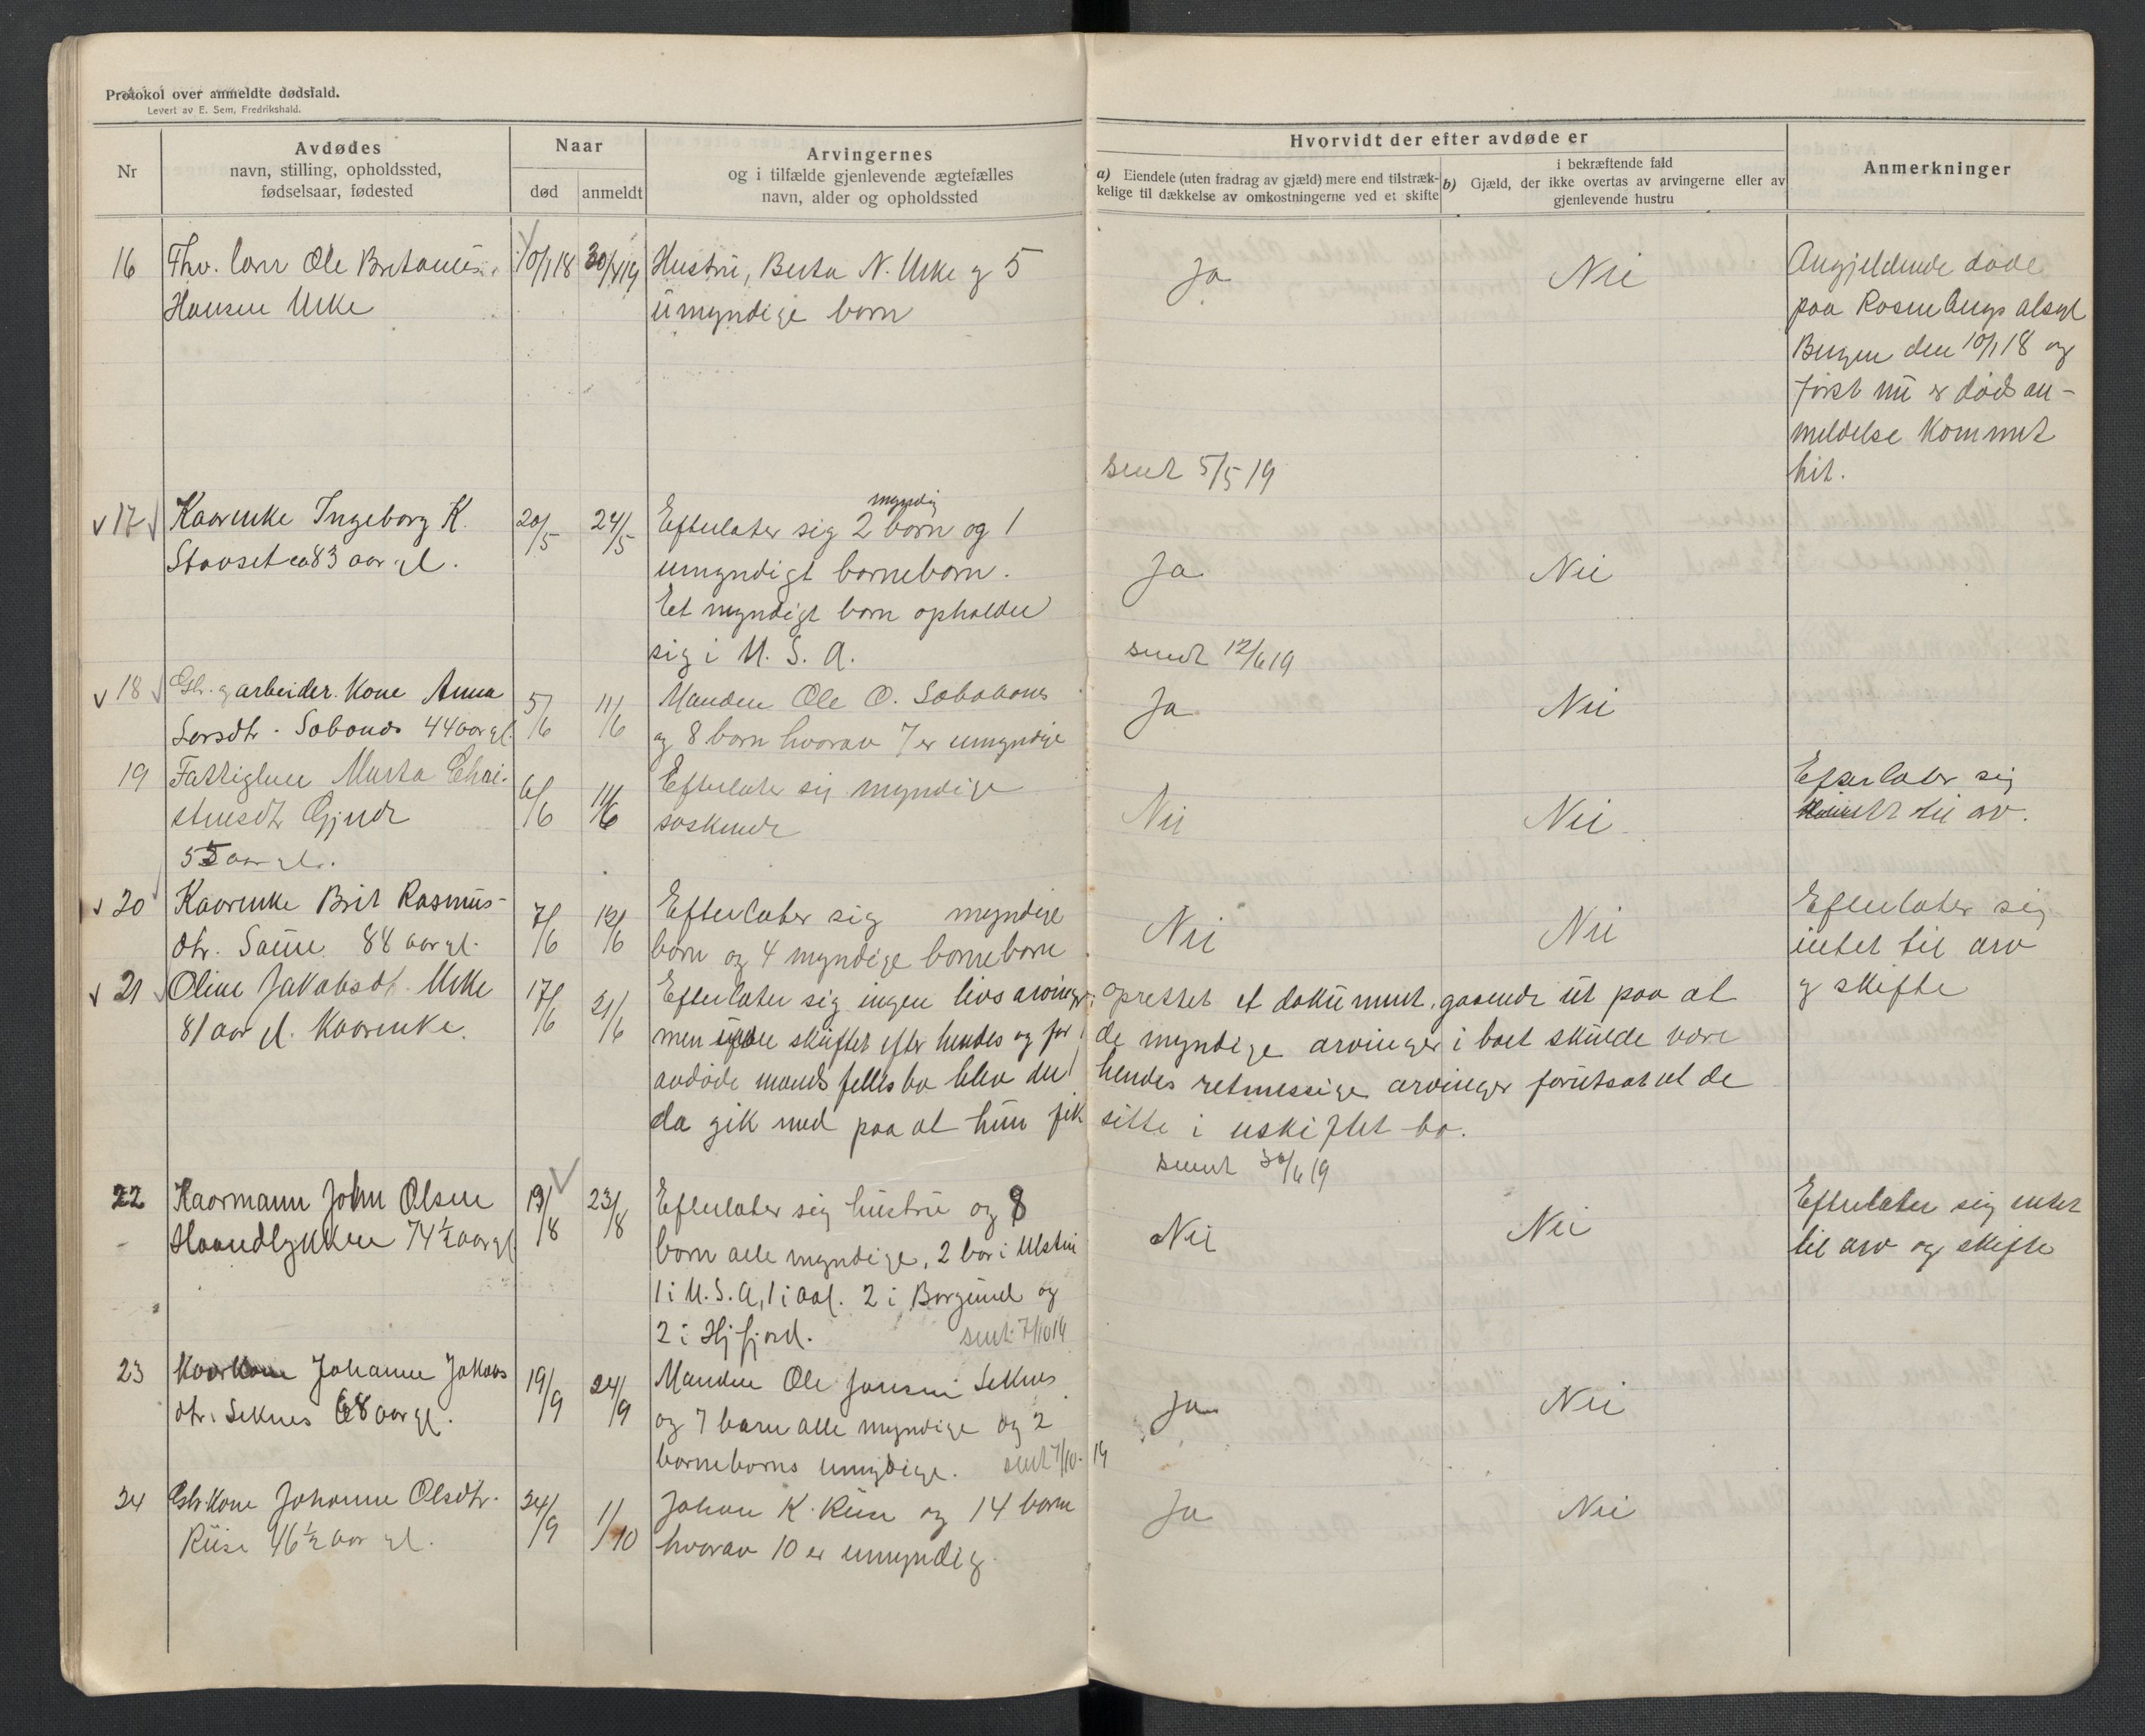 Protokol over anmeldte dødsfald.
Levert av E. Sem, Fredrikshald.
Nr
Avdødes
navn, stilling, opholdssted,
fødselsaar, fødested
Naar
død
anmeldt
Arvingernes
og i tilfælde gjenlevende ægtefælles
navn, alder og opholdssted
Hvorvidt der efter avdøde er
a) Eiendele (uten fradrag av gjæld) mere end tilstræk-
kelige til dækkelse av omkostningerne ved et skifte
i bekræftende fald
b) Gjæld, der ikke overtas av arvingerne eller av
gjenlevende hustru
Anmerkninger
16 Fhv. Ole
Hansen Urke
10/1 18
30/4 19
Hustru, Berta N. Urke g 5
umyndige born
Ja
Nei
Angjeldende døde
paa Rosenbergs
Bergen den 10/1 18 og
først nu er dødsan-
meldelse kommet
hit.
sendt 5/5 19
17 Kaarenke Ingeborg K.
Stavset ca 83 aar gl.
20/5
24/5
myndig
Efterlater sig 2 born og 1
umyndigt barnebarn.
Eet myndigt barn opholder
sig i U. S. A.
Ja
Nei
sendt 12/6 19
18 g arbeider. Kone Anna
Larsdtr. 44 aar gl.
5/6
11/6
Manden Ole O.
og 8 born hvorav 7 er umyndige
Ja
Nei
19 Marta Chri-
stensdtr
55 aar gl.
6/6
11/6
Efterlater sig myndige
søskende
Nei
Nei
Efterlater sig
til arv.
20 Kaarenke Brit Rasmus-
dtr. 88 aar gl.
7/6
12/6
Efterlater sig myndige
born og 4 myndige barneborn
Nei
Nei
Efterlater sig
intet til arv
g skifte
21 Oline Jakobsdt. Urke
81 aar gl. Kaarenke.
17/6
21/6
Efterlater sig ingen livsarvinger,
men skiftet efter hendes og for
avdøde mands fellesbo blev der
da gik med paa at hun fik
oprettet et dokument, gaaende ut paa at
de myndige arvinger i boet skulde være
hendes retmessige arvinger forutsat at de
sitte i uskiftet bo.
sendt 30/6 19
22 Kaarmann John Olsen
74½ aar gl
13/8
23/8
Efterlater sig hustru og 8
born alle myndige, 2 bor i Ulstein
1 i U.S.A, 1 i Aal. 2 i Borgund og
2 i Hj.fjord. sendt 7/10 19
Nei
Nei
Efterlater sig intet
til arv og skifte
23 Kaarkone Johanne Jakobs
dtr. Seknes 68 aar gl.
19/9
24/9
Manden Ole Jensen Seknes
og 7 barn alle myndige og 2
barneborns umyndige. sendt 7/10. 19
Ja
Nei
24 Gbr.kone Johanne Olsdtr.
Riise 46½ aar gl.
24/9
1/10
Johan K. Riise og 14 born
hvorav 10 er umyndig.
Ja
Nei